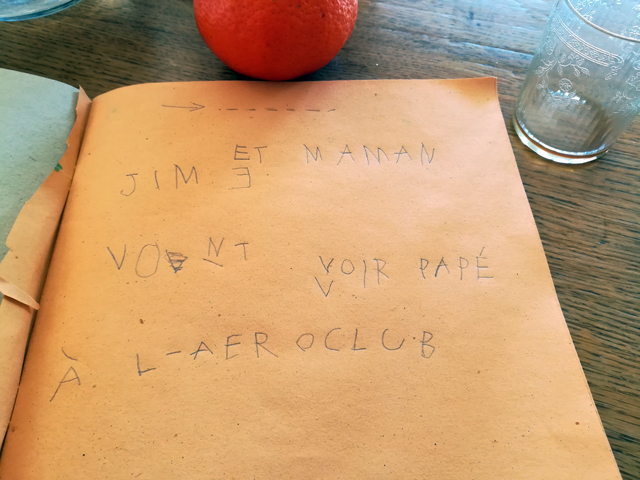 JIM ET MAMAN
VONT VOIR PAPÉ
À L-AEROCLUB